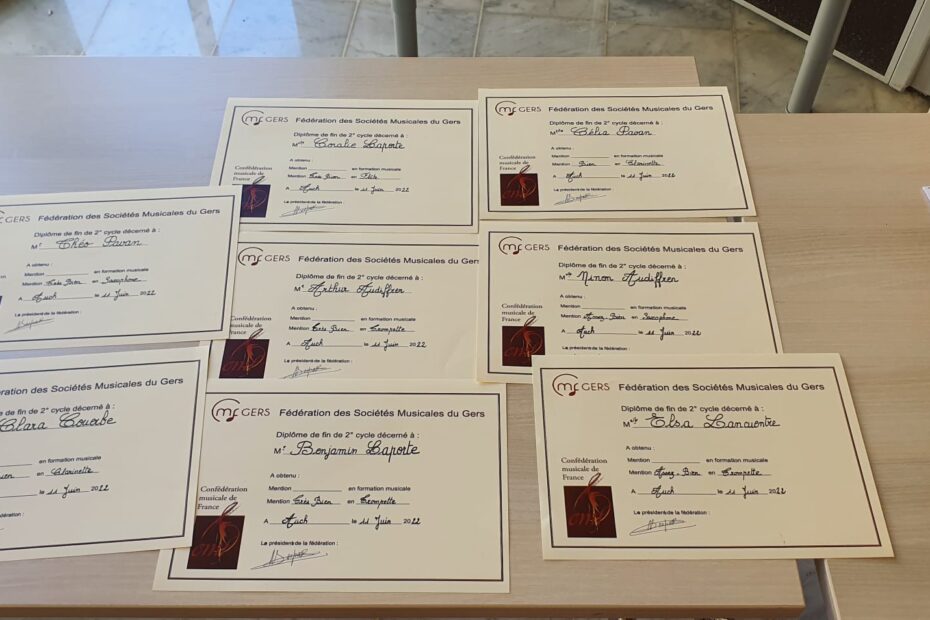 CMF GERS Fédération des Sociétés Musicales du Gers
Diplôme de fin de 2° cycle décerné à :
Mlle Coralie Laporte
A obtenu :
Mention en formation musicale
Mention Très Bien en Flûte
A Auch le 11 Juin 2022
Le président de la fédération :
Confédération
musicale de
France
CMF GERS Fédération des Sociétés Musicales du Gers
Diplôme de fin de 2° cycle décerné à :
Mlle Célia Pavan
A obtenu :
Mention en formation musicale
Mention Bien en Clarinette
A Auch le 11 Juin 2022
Le président de la fédération :
Confédération
musicale de
France
GERS Fédération des Sociétés Musicales du Gers
Diplôme de fin de 2° cycle décerné à :
Mr Théo Pavan
A obtenu :
Mention en formation musicale
Mention Très Bien en Saxophone
A Auch le 11 Juin 2022
Le président de la fédération :
CMF GERS Fédération des Sociétés Musicales du Gers
Diplôme de fin de 2° cycle décerné à :
Mr Arthur Audiffren
A obtenu :
Mention en formation musicale
Mention Très Bien en Trompette
A Auch le 11 Juin 2022
Le président de la fédération :
Confédération
musicale de
France
CMF GERS Fédération des Sociétés Musicales du Gers
Diplôme de fin de 2° cycle décerné à :
Mlle Ninon Audiffren
A obtenu :
Mention en formation musicale
Mention Assez-Bien en Saxophone
A Auch le 11 Juin 2022
Le président de la fédération :
Confédération
musicale de
France
des Sociétés Musicales du Gers
de fin de 2° cycle décerné à :
Clara Courbe
en formation musicale
en Clarinette
le 11 Juin 2022
fédération :
CMF GERS Fédération des Sociétés Musicales du Gers
Diplôme de fin de 2° cycle décerné à :
Mr Benjamin Laporte
A obtenu :
Mention en formation musicale
Mention Très Bien en Trompette
A Auch le 11 Juin 2022
Le président de la fédération :
Confédération
musicale de
France
CMF GERS Fédération des Sociétés Musicales du Gers
Diplôme de fin de 2° cycle décerné à :
Mlle Elsa Lancuontre
A obtenu :
Mention en formation musicale
Mention Assez-Bien en Trompette
A Auch le 11 Juin 2022
Le président de la fédération :
Confédération
musicale de
France